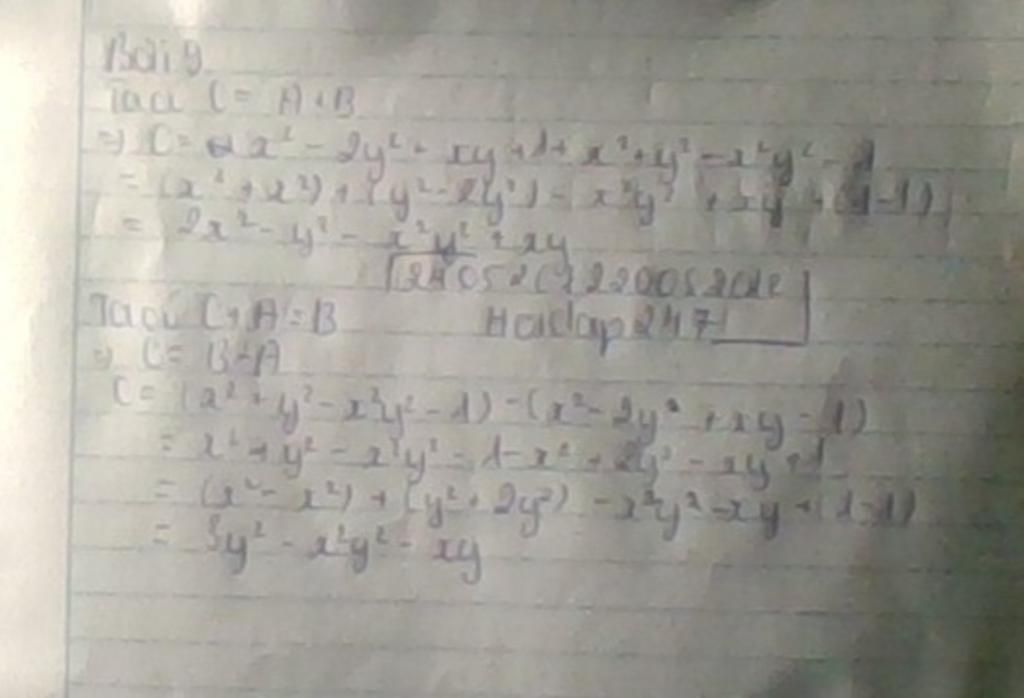 Bài 9
Ta có C = A + B
⇒ C = x² - 2y² + xy + 1 + x² + y² - x²y² - 1
= (x² + x²) + (y² - 2y²) - x²y² + xy + (1-1)
= 2x² - y² - x²y² + xy
Hoidap247
Ta có C + A = B
⇒ C = B - A
C = (x² + y² - x²y² - 1) - (x² - 2y² + xy - 1)
= x² + y² - x²y² - 1 - x² + 2y² - xy + 1
= (x² - x²) + (y² + 2y²) - x²y² - xy + (1-1)
= 3y² - x²y² - xy